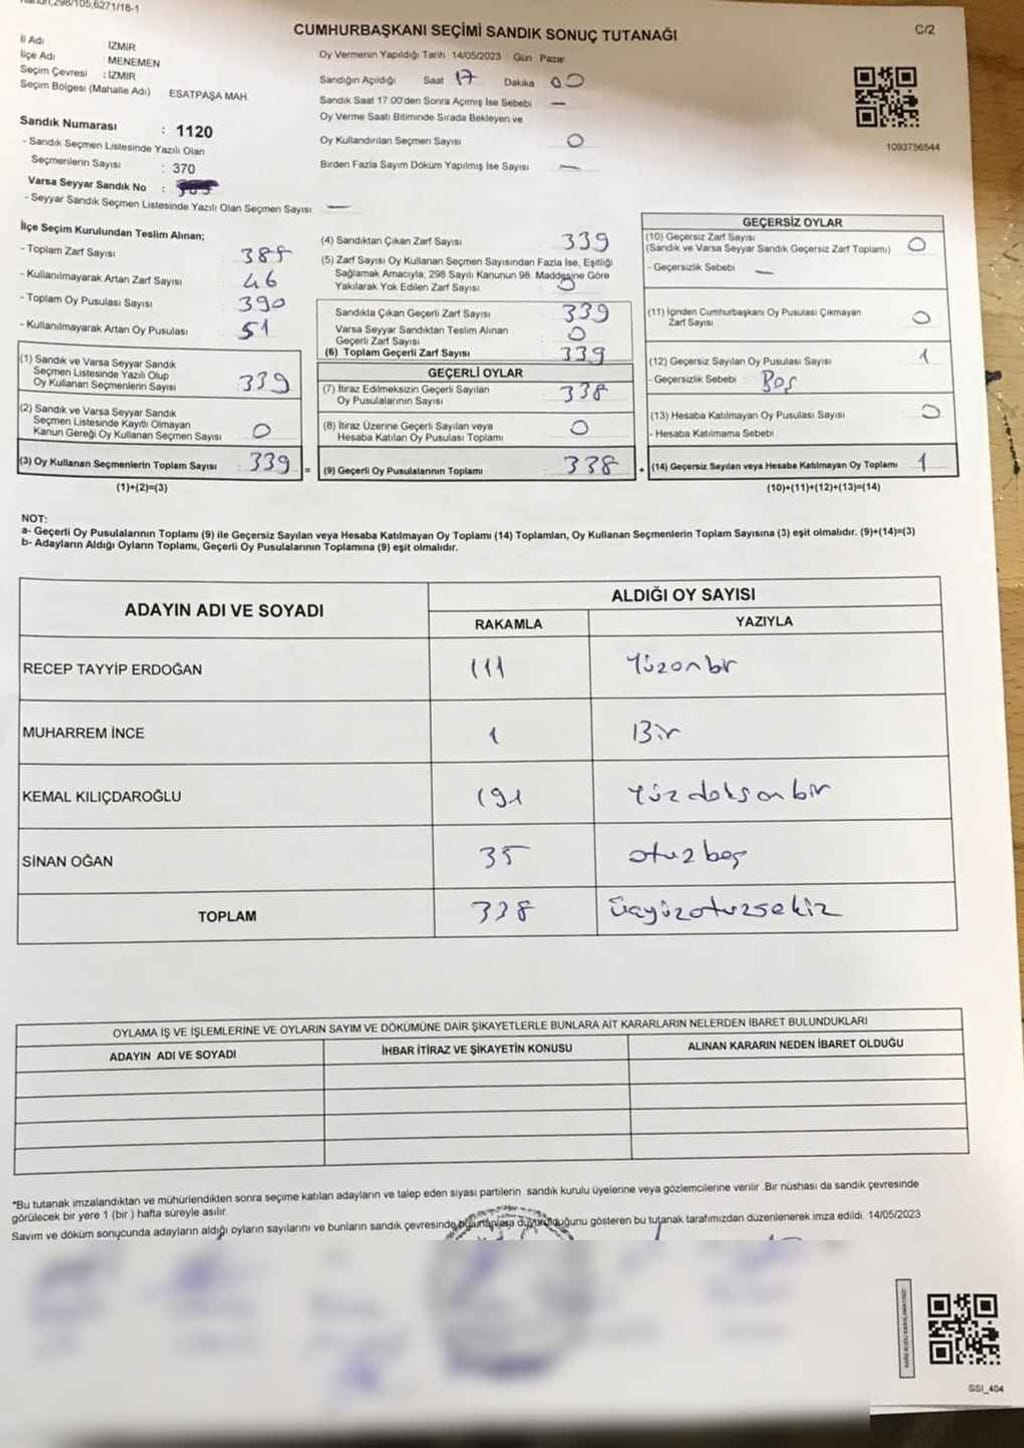 298/105,6271/18-1
CUMHURBAŞKANI SEÇİMİ SANDIK SONUÇ TUTANAĞI
C/2
İl Adı : İZMİR
İlçe Adı : MENEMEN
Seçim Çevresi : İZMİR
Seçim Bölgesi (Mahalle Adı) ESATPAŞA MAH.
Sandık Numarası : 1120
- Sandık Seçmen Listesinde Yazılı Olan
Seçmenlerin Sayısı : 370
Varsa Seyyar Sandık No :
- Seyyar Sandık Seçmen Listesinde Yazılı Olan Seçmen Sayısı —
Oy Vermenin Yapıldığı Tarih 14/05/2023 Gün Pazar
Sandığın Açıldığı Saat 17 Dakika 00
Sandık Saat 17:00'den Sonra Açımış İse Sebebi —
Oy Verme Saati Bitiminde Sırada Bekleyen ve
Oy Kullandırılan Seçmen Sayısı 0
Birden Fazla Sayım Döküm Yapılmış İse Sayısı —
1093756544
İlçe Seçim Kurulundan Teslim Alınan;
- Toplam Zarf Sayısı 385
- Kullanılmayarak Artan Zarf Sayısı 46
- Toplam Oy Pusulası Sayısı 390
- Kullanılmayarak Artan Oy Pusulası 51
(1) Sandık ve Varsa Seyyar Sandık
Seçmen Listesinde Yazılı Olup
Oy Kullanan Seçmenlerin Sayısı 339
(2) Sandık ve Varsa Seyyar Sandık
Seçmen Listesinde Kayıtlı Olmayan
Kanun Gereği Oy Kullanan Seçmen Sayısı 0
(3) Oy Kullanan Seçmenlerin Toplam Sayısı 339 =
(1)+(2)=(3)
(4) Sandıktan Çıkan Zarf Sayısı 339
(5) Zarf Sayısı Oy Kullanan Seçmen Sayısından Fazla İse, Eşitliği
Sağlamak Amacıyla; 298 Sayılı Kanunun 98. Maddesine Göre
Yakılarak Yok Edilen Zarf Sayısı 0
Sandıkta Çıkan Geçerli Zarf Sayısı 339
Varsa Seyyar Sandıktan Teslim Alınan
Geçerli Zarf Sayısı 0
(6) Toplam Geçerli Zarf Sayısı 339
GEÇERLİ OYLAR
(7) İtiraz Edilmeksizin Geçerli Sayılan
Oy Pusulalarının Sayısı 338
(8) İtiraz Üzerine Geçerli Sayılan veya
Hesaba Katılan Oy Pusulası Toplamı 0
(9) Geçerli Oy Pusulalarının Toplamı 338 +
GEÇERSİZ OYLAR
(10) Geçersiz Zarf Sayısı
(Sandık ve Varsa Seyyar Sandık Geçersiz Zarf Toplamı) 0
- Geçersizlik Sebebi —
(11) İçinden Cumhurbaşkanı Oy Pusulası Çıkmayan
Zarf Sayısı 0
(12) Geçersiz Sayılan Oy Pusulası Sayısı 1
- Geçersizlik Sebebi Boş
(13) Hesaba Katılmayan Oy Pusulası Sayısı 0
- Hesaba Katılmama Sebebi
(14) Geçersiz Sayılan veya Hesaba Katılmayan Oy Toplamı 1
(10)+(11)+(12)+(13)=(14)
NOT:
a- Geçerli Oy Pusulalarının Toplamı (9) ile Geçersiz Sayılan veya Hesaba Katılmayan Oy Toplamı (14) Toplamları, Oy Kullanan Seçmenlerin Toplam Sayısına (3) eşit olmalıdır. (9)+(14)=(3)
b- Adayların Aldığı Oyların Toplamı, Geçerli Oy Pusulalarının Toplamına (9) eşit olmalıdır.
ADAYIN ADI VE SOYADI
ALDIĞI OY SAYISI
RAKAMLA YAZIYLA
RECEP TAYYİP ERDOĞAN 111 Yüzonbir
MUHARREM İNCE 1 Bir
KEMAL KILIÇDAROĞLU 191 Yüz doksan bir
SİNAN OĞAN 35 otuz beş
TOPLAM 338 üçyüzotuzsekiz
OYLAMA İŞ VE İŞLEMLERİNE VE OYLARIN SAYIM VE DÖKÜMÜNE DAİR ŞİKAYETLERLE BUNLARA AİT KARARLARIN NELERDEN İBARET BULUNDUKLARI
ADAYIN ADI VE SOYADI İHBAR İTİRAZ VE ŞİKAYETİN KONUSU ALINAN KARARIN NEDEN İBARET OLDUĞU
*Bu tutanak imzalandıktan ve mühürlendikten sonra seçime katılan adayların ve talep eden siyasi partilerin sandık kurulu üyelerine veya gözlemcilerine verilir. Bir nüshası da sandık çevresinde
görülecek bir yere 1 (bir ) hafta süreyle asılır.
Sayım ve döküm sonucunda adayların aldığı oyların sayılarını ve bunların sandık çevresinde bulunanlara duyurulduğunu gösteren bu tutanak tarafımızdan düzenlenerek imza edildi. 14/05/2023
SSI_404